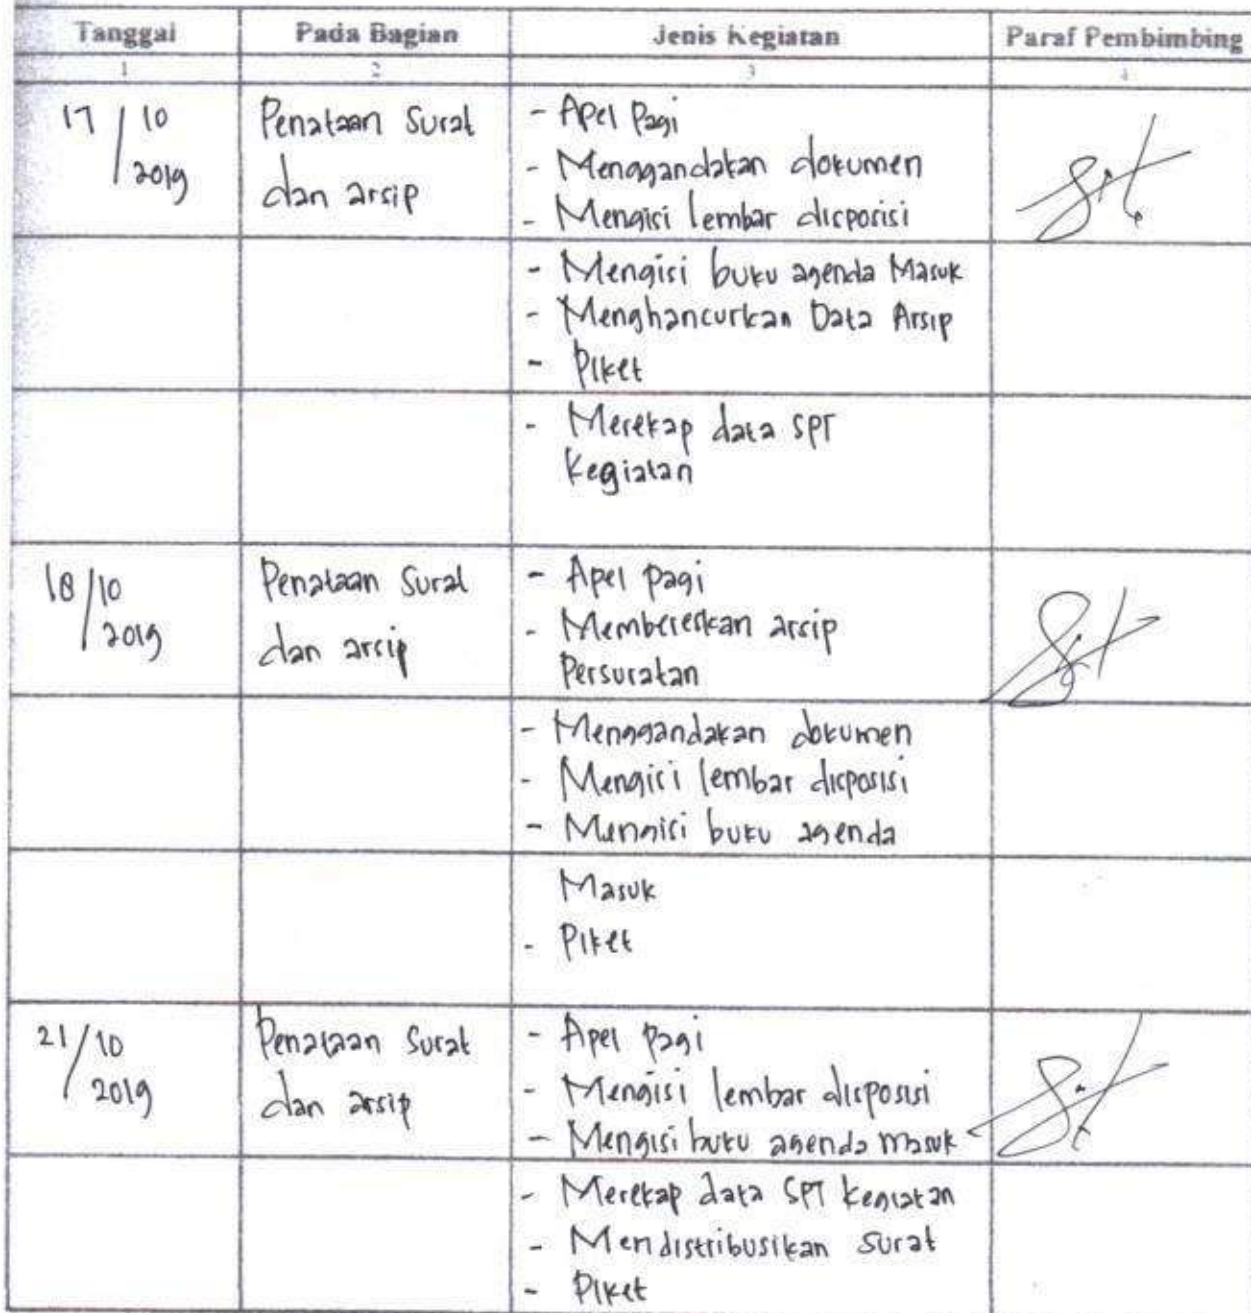 Tanggal Pada Bagian Jenis Kegiatan Paraf Pembimbing
1 2 3 4
17/10 2019 Penataan Surat dan arsip
- Apel Pagi
- Menggandakan dokumen
- Mengisi lembar disposisi
- Mengisi buku agenda Masuk
- Menghancurkan Data Arsip
- Piket
- Merekap data SPT
Kegiatan
18/10 2019 Penataan Surat dan arsip
- Apel pagi
- Membereskan arsip
Persuratan
- Menggandakan dokumen
- Mengisi lembar disposisi
- Mengisi buku agenda
Masuk
- Piket
21/10 2019 Penataan Surat dan arsip
- Apel pagi
- Mengisi lembar disposisi
- Mengisi buku agenda masuk
- Merekap data SPT kegiatan
- Mendistribusikan surat
- Piket